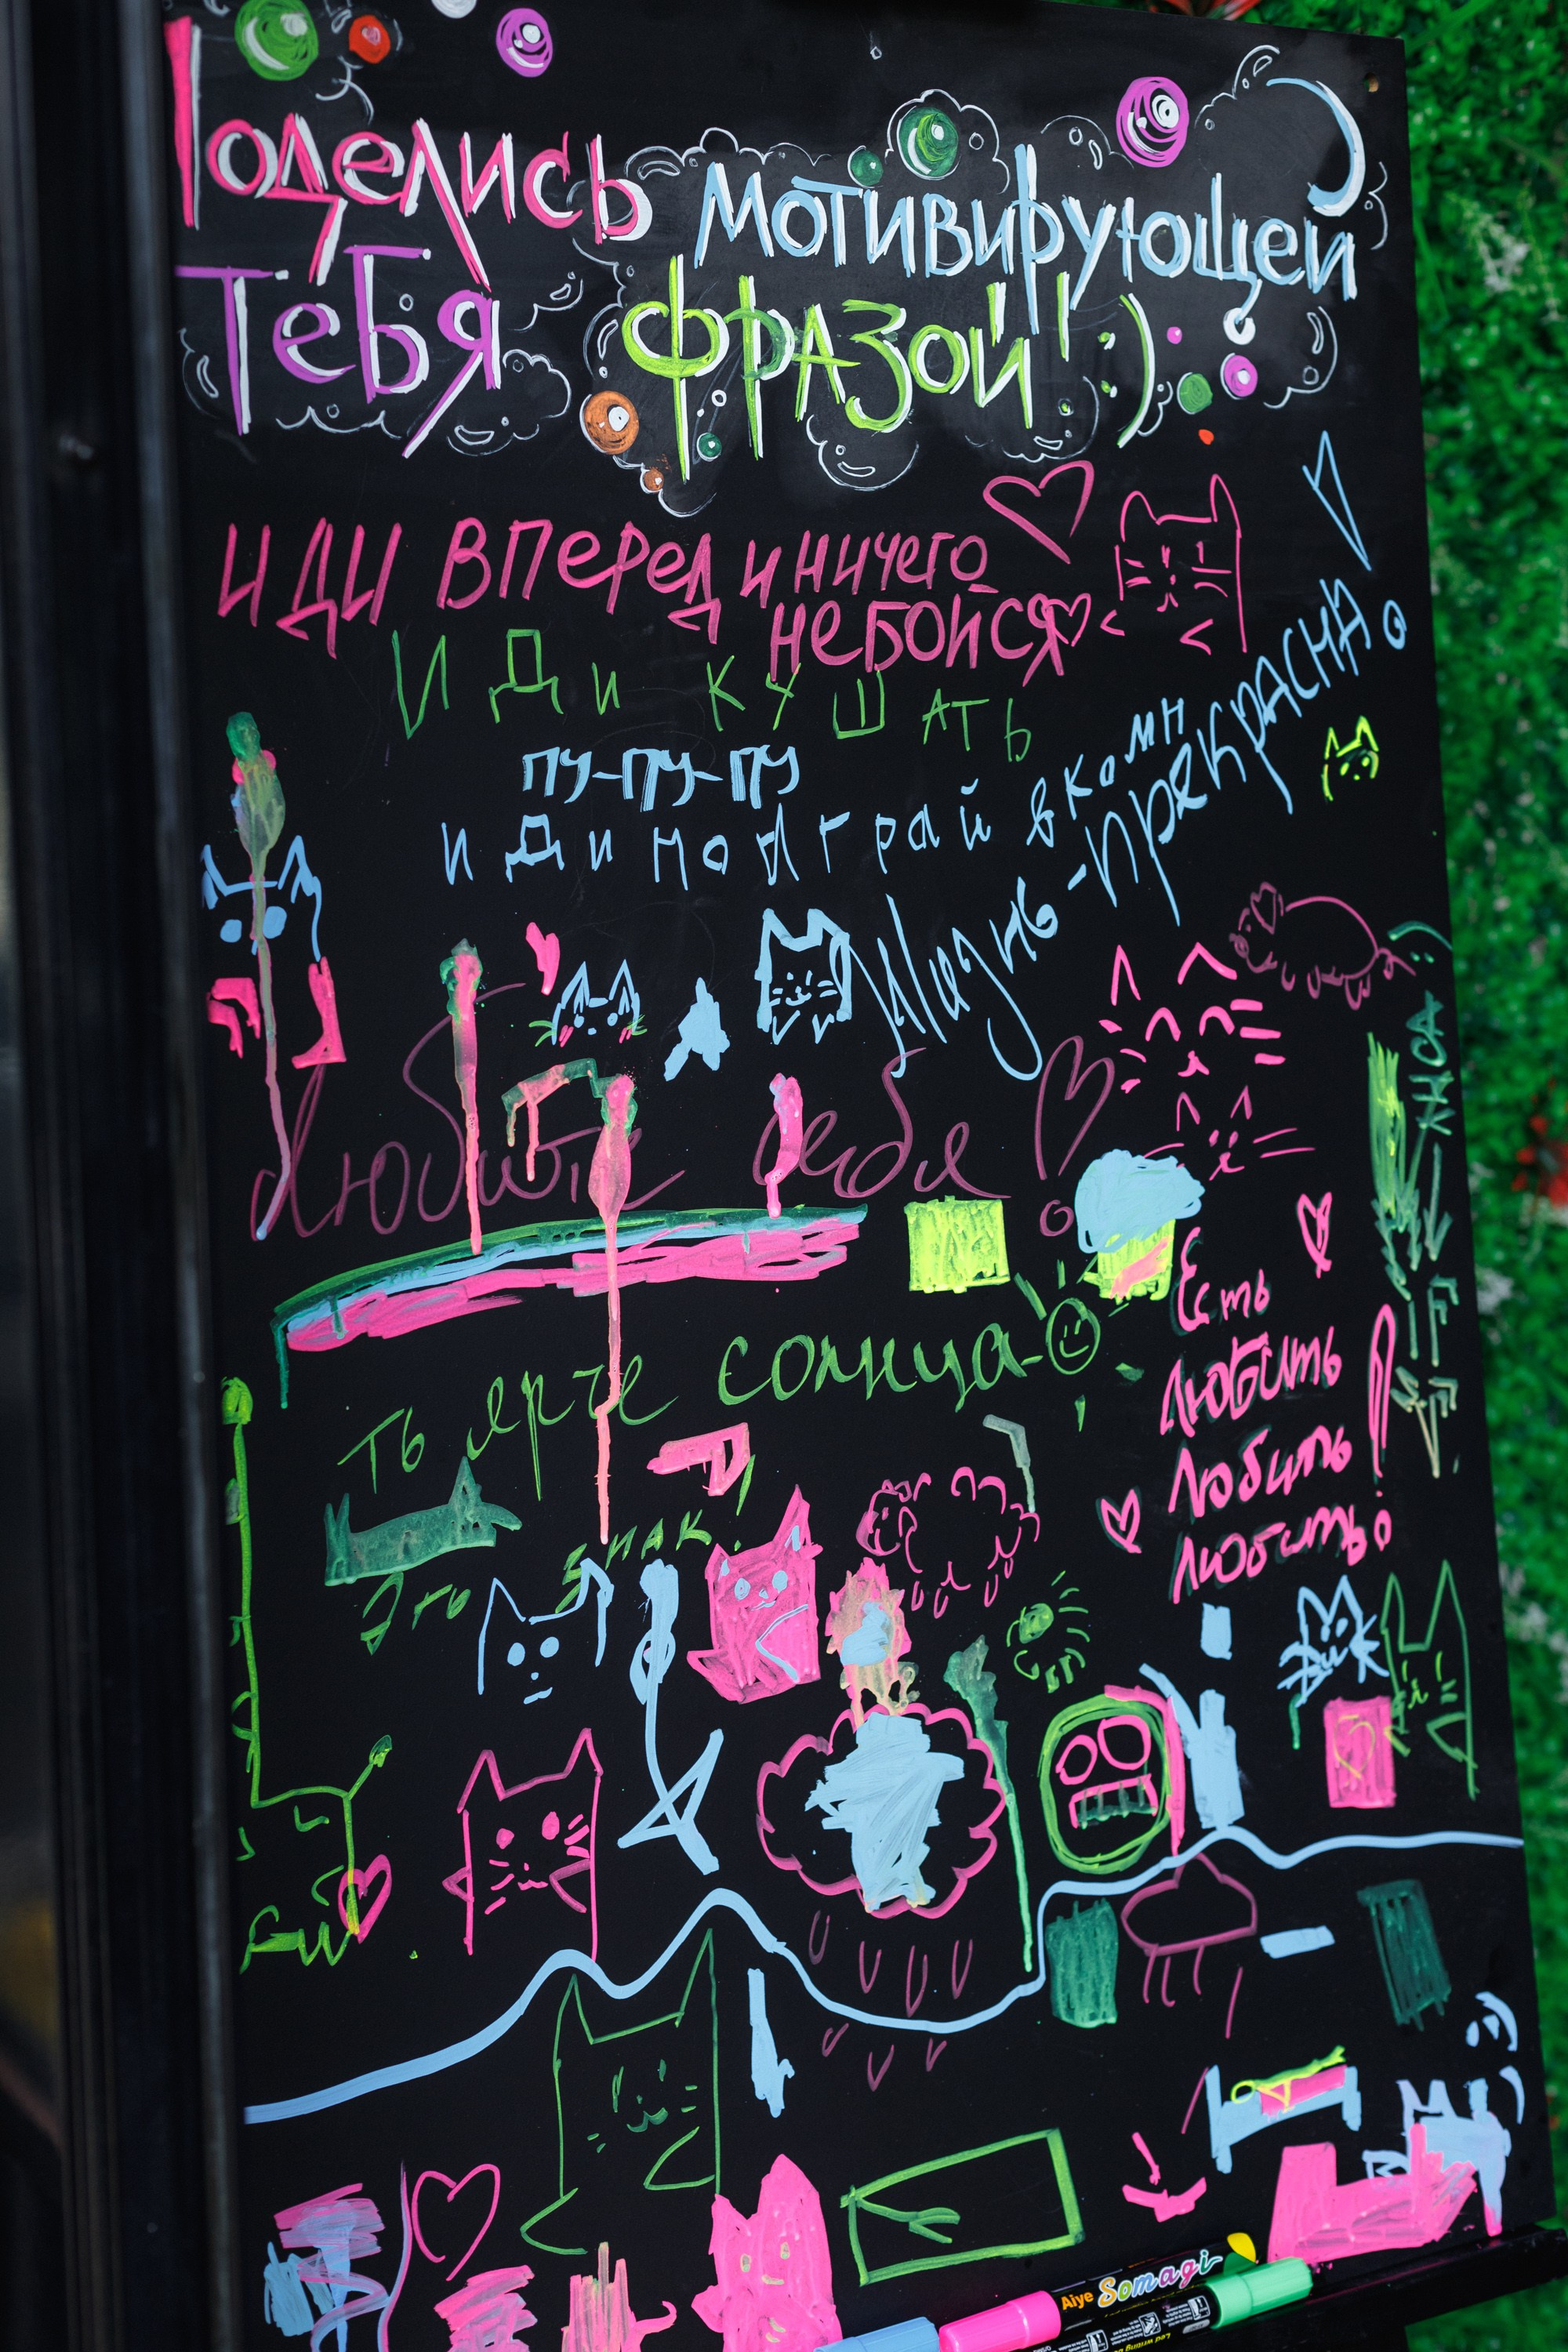 Поделись мотивирующей
Тебя фразой! :)
иди вперед и ничего
не бойся
иди кушать
пу-пу-пу
иди поиграй в комп
Жизнь - прекрасна!
Любите себя
ть ярче солнца
Есть
любить
любить
любить!
Это знак!
Aiye Somagi